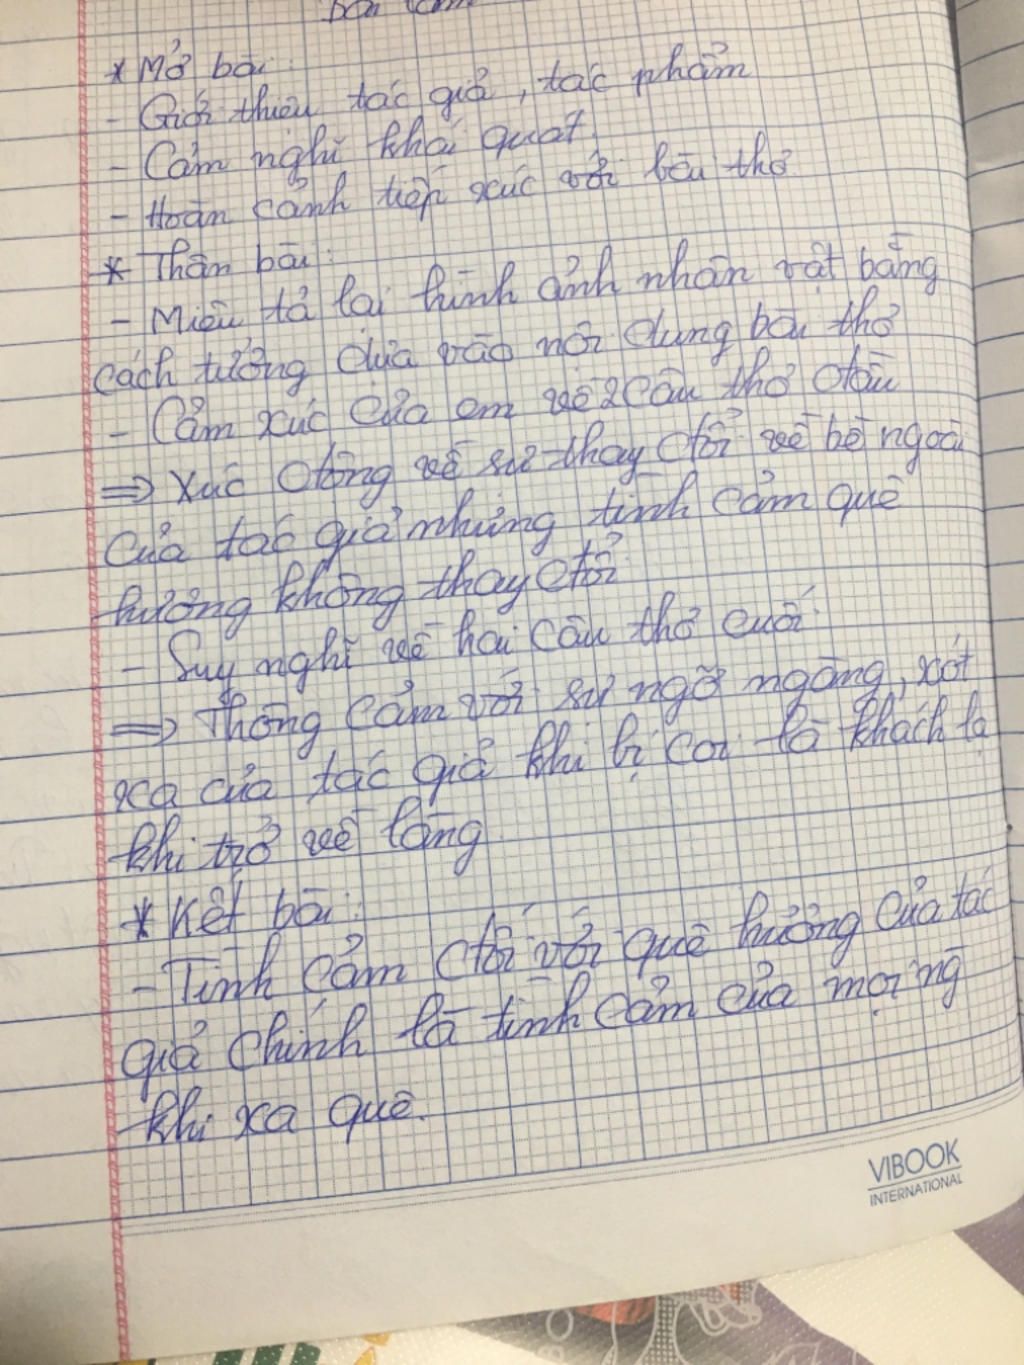 * Mở bài:
- Giới thiệu tác giả, tác phẩm
- Cảm nghĩ khái quát
- Hoàn cảnh tiếp xúc với bài thơ
* Thân bài:
- Miêu tả lại hình ảnh nhân vật bằng
cách tưởng dựa vào nội dung bài thơ
- Cảm xúc của em về 2 câu thơ đầu
=> Xúc động về sự thay đổi về bề ngoài
của tác giả nhưng tình cảm quê
hương không thay đổi
- Suy nghĩ về hai câu thơ cuối
=> Thông cảm với sự ngỡ ngàng, xót
xa của tác giả khi bị coi là khách lạ
khi trở về làng
* Kết bài:
- Tình cảm đối với quê hương của tác
giả chính là tình cảm của mọi ng
khi xa quê.
VIBOOK
INTERNATIONAL